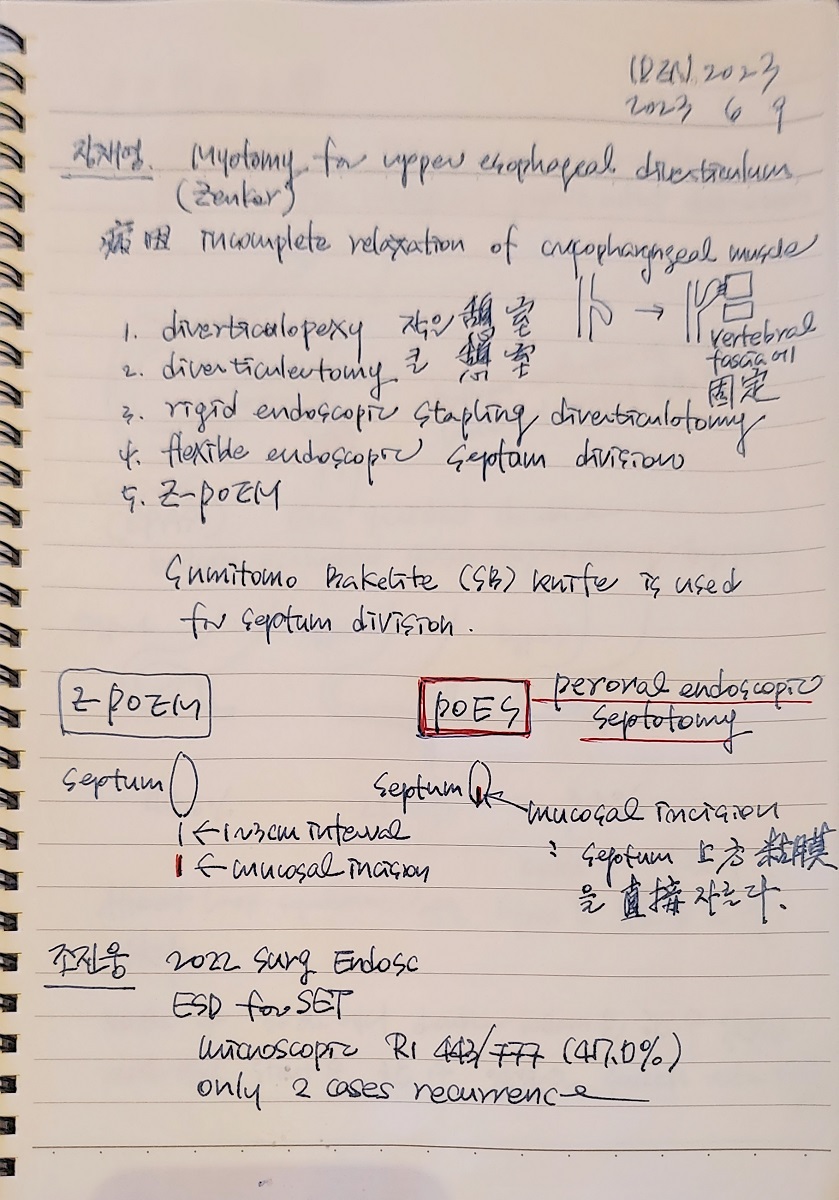 IDEN 2023
2023 6 9
장재영. Myotomy for upper esophageal diverticulum
(Zenker)
病因 incomplete relaxation of cricopharyngeal muscle
1. diverticulopexy 작은 憩室
2. diverticulectomy 큰 憩室
→ vertebral
fascia에
固定
3. rigid endoscopic stapling diverticulotomy
4. flexible endoscopic septum division
5. Z-POEM
Sumitomo Bakelite (SB) knife is used
for septum division.
Z-POEM
POES peroral endoscopic
septotomy
septum
← 1~3cm interval
← mucosal incision
septum ← mucosal incision
: septum 上方 粘膜
을 直接 자른다.
조진웅 2022 Surg Endosc
ESD for SET
microscopic R1 443/777 (47.0%)
only 2 cases recurrence